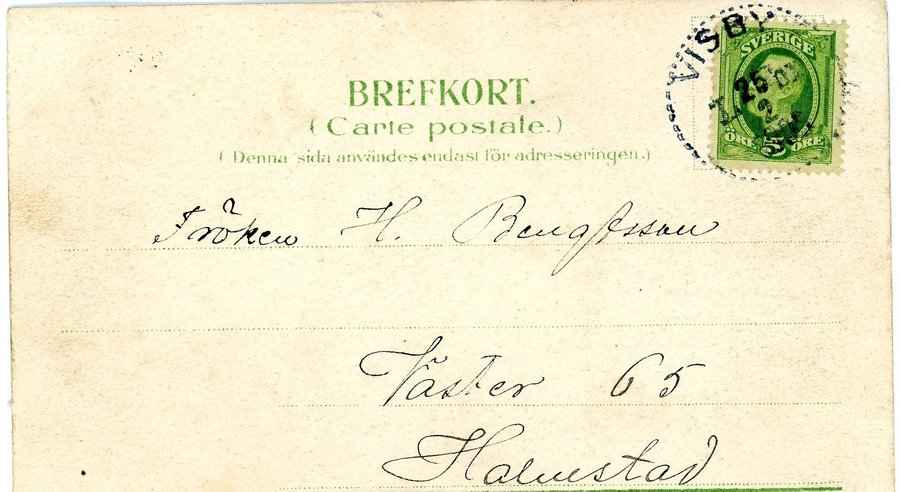 VISBY
SVERIGE
25
ÖRE 5 ÖRE
BREFKORT.
(Carte postale.)
(Denna sida användes endast för adresseringen.)
Fröken H. Bengtsson
Väster 65
Halmstad